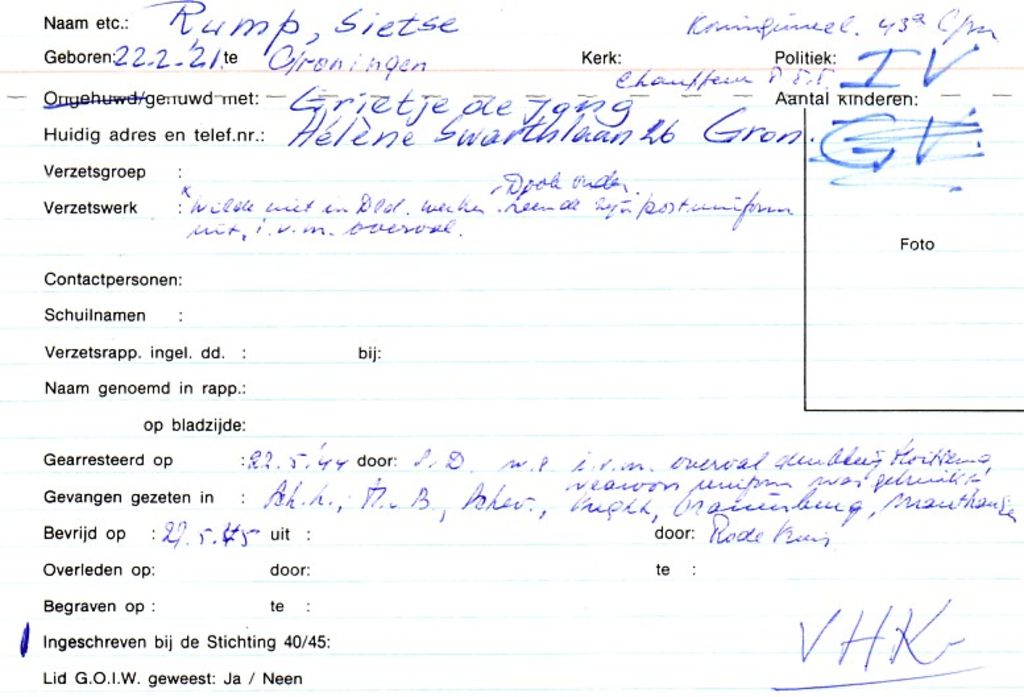 Naam etc.: Rump, Sietse
Koninginnel. 43a
Geboren: 22.2.'21. te Groningen Kerk: Politiek: IV
Chauffeur
Ongehuwd/gehuwd met: Grietje de Jong Aantal kinderen:
Huidig adres en telef.nr.: Hélène Swarthlaan 26 Gron. GV.
Verzetsgroep :
Dook onder.
Verzetswerk : x Wilde niet in Dld. werken. Leende zijn postuniform
uit, i.v.m. overval.
Foto
Contactpersonen:
Schuilnamen :
Verzetsrapp. ingel. dd. : bij:
Naam genoemd in rapp.:
op bladzijde:
Gearresteerd op : 22.5.'44 door: S.D. i.v.m. overval
waarvoor uniform was gebruikt
Gevangen gezeten in : Sch.h., H.v.B., Vught, Oranienburg, Mauthausen
Bevrijd op : 27.5.45 uit : door: Rode Kruis
Overleden op: door: te :
Begraven op : te :
Ingeschreven bij de Stichting 40/45:
Lid G.O.I.W. geweest: Ja / Neen
VHK